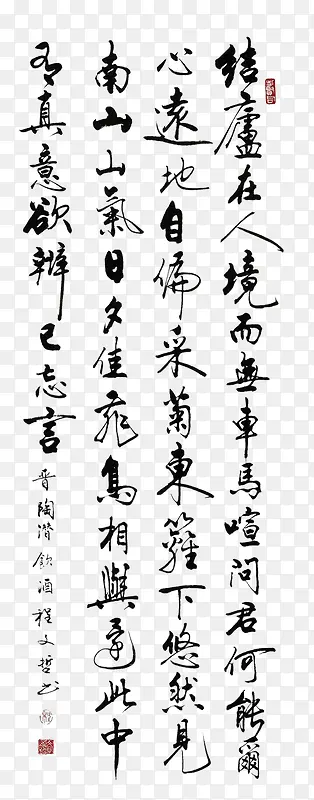 結廬在人境而無車馬喧問君何能爾
心遠地自偏采菊東籬下悠然見
南山山氣日夕佳飛鳥相與還此中
有真意欲辨已忘言
晋陶潛飲酒程文哲书